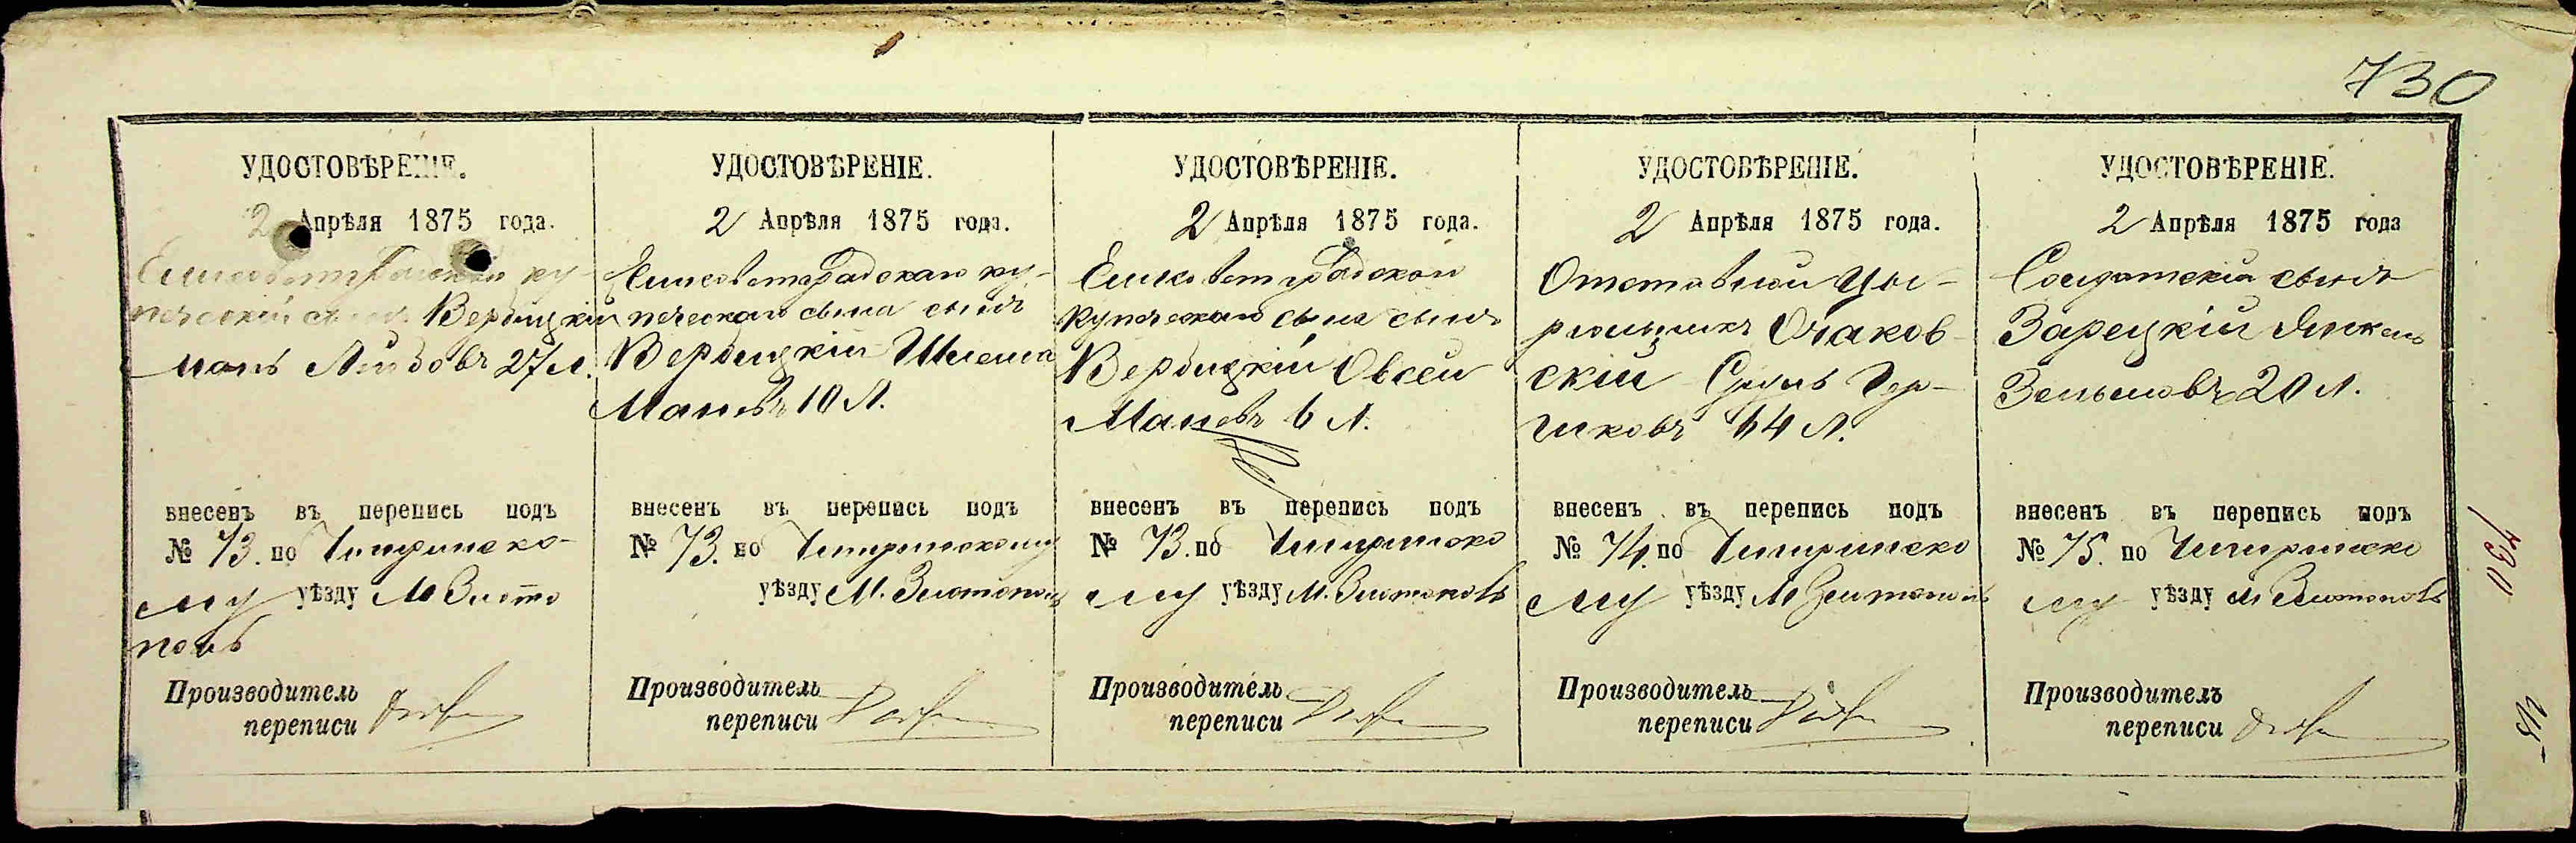 730
УДОСТОВѢРЕНІЕ.
2 Апрѣля 1875 года.
Елисаветградскій ку-
печескій сынъ Вербицкій
Мань Лейбовъ 27 л.
внесенъ въ перепись подъ
№ 73. по Чигиринско-
му уѣзду М Злато
поль
Производитель
переписи
УДОСТОВѢРЕНІЕ.
2 Апрѣля 1875 года.
Елисаветградскаго ку-
печескаго сына сынъ
Вербицкій Шлема
Маневъ 10 Л.
внесенъ въ перепись подъ
№ 73. по Чигиринскому
уѣзду М. Златополь
Производитель
переписи
УДОСТОВѢРЕНІЕ.
2 Апрѣля 1875 года.
Елисаветградскаго
купеческаго сына сынъ
Вербицкій Овсей
Маневъ 6 Л.
внесенъ въ перепись подъ
№ 73. по Чигиринско
му уѣзду М. Златополь
Производитель
переписи
УДОСТОВѢРЕНІЕ.
2 Апрѣля 1875 года.
Отставной Цы-
рюльникъ Очаков-
скій Сруль Гер-
шковъ 44 Л.
внесенъ въ перепись подъ
№ 74. по Чигиринско
му уѣзду М Златополь
Производитель
переписи
УДОСТОВѢРЕНІЕ.
2 Апрѣля 1875 года
Солдатскій сынъ
Зарецкій Янкель
Зельмовъ 20 л.
внесенъ въ перепись подъ
№ 75. по Чигиринско
му уѣзду М Златополь
Производитель
переписи
730